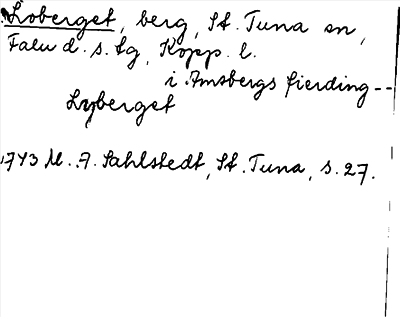 Loberget, berg, St. Tuna sn,
Falu d. s. lg, Kopp. l.
i Amsbergs fierding --
Lyberget
1743 M. A. Sahlstedt, St. Tuna, s. 27.